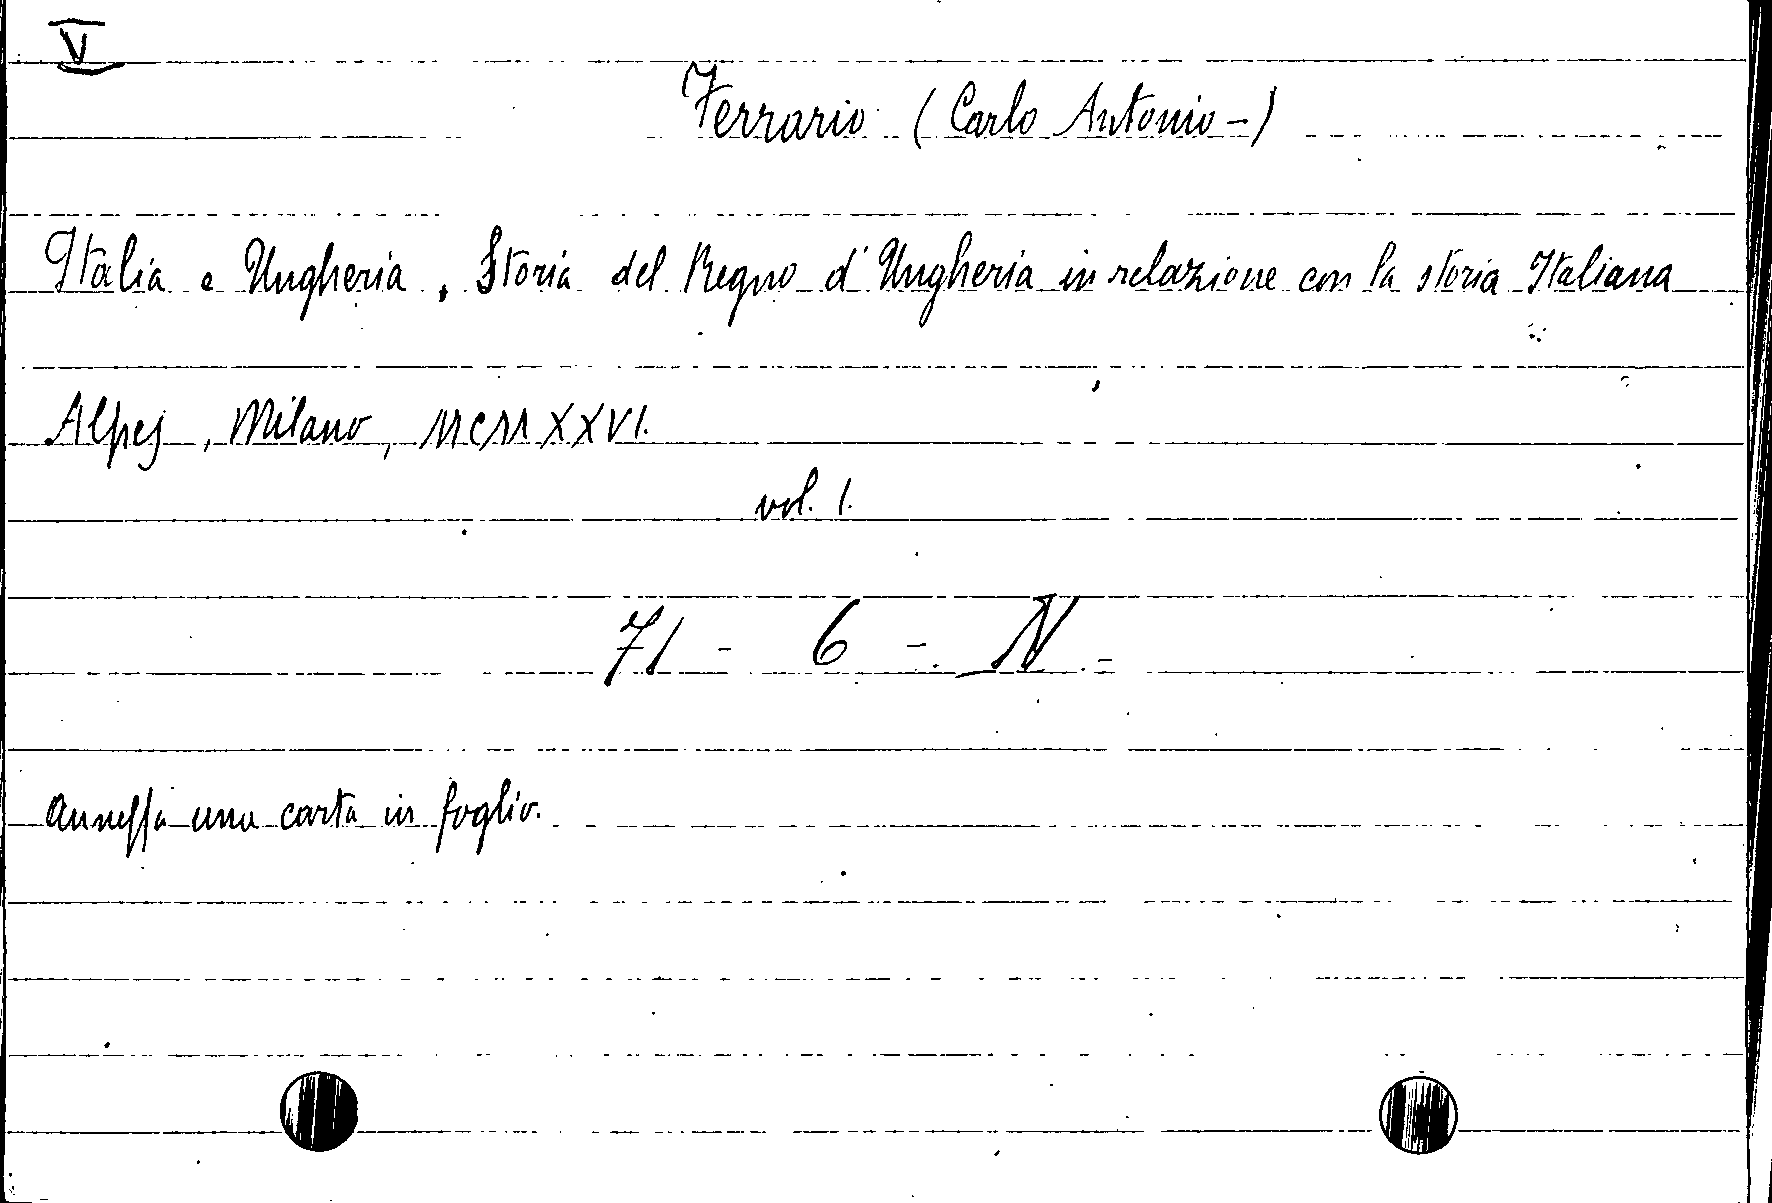 V
Ferrario (Carlo Antonio-)
Italia e Ungheria. Storia del Regno d'Ungheria in relazione con la storia Italiana
Alpes, Milano, MCMXXVI.
vol. 1.
71 - 6 - N. -
Annessa una carta in foglio.